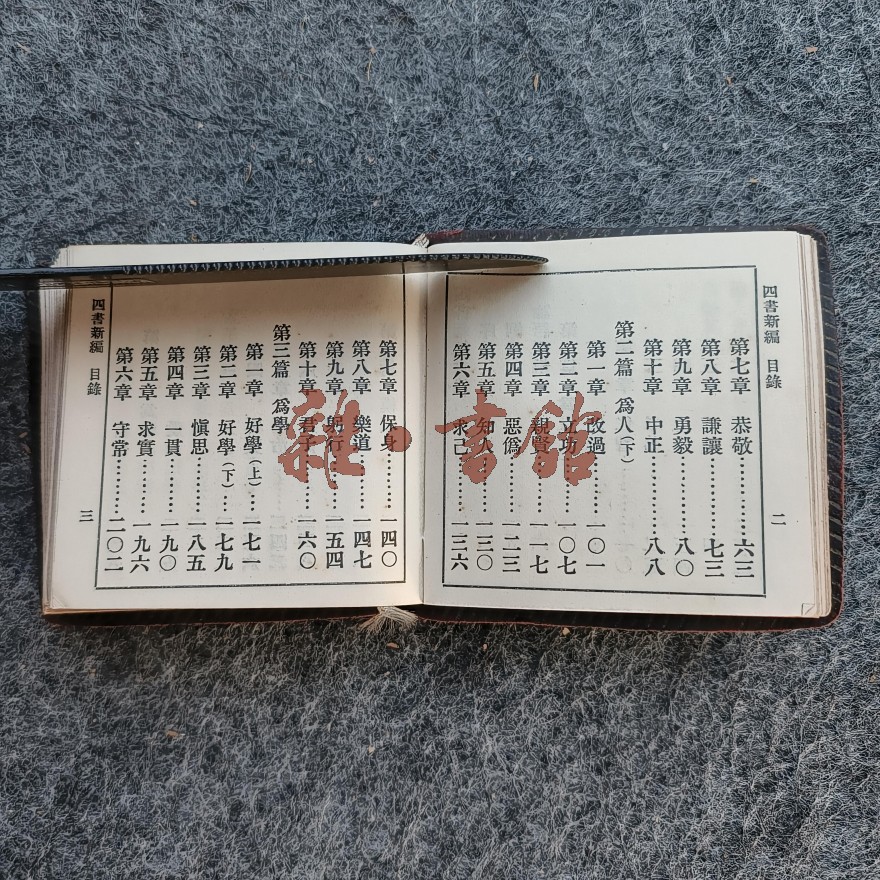 四書新編 目錄
二
第七章 恭敬………六三
第八章 謙讓………七三
第九章 勇毅………八〇
第十章 中正………八八
第二篇 爲人(下)
第一章 改過………一〇一
第二章 立功………一〇七
第三章 親賢………一一七
第四章 惡僞………一二三
第五章 知人………一三〇
第六章 求己………一三六
第七章 保身………一四〇
第八章 樂道………一四七
第九章 躬行………一五四
第十章 君子………一六〇
第三篇 爲學
第一章 好學(上)…一七一
第二章 好學(下)…一七九
第三章 愼思………一八五
第四章 一貫………一九〇
第五章 求實………一九六
第六章 守常………二〇二
四書新編 目錄
三
雜·書館